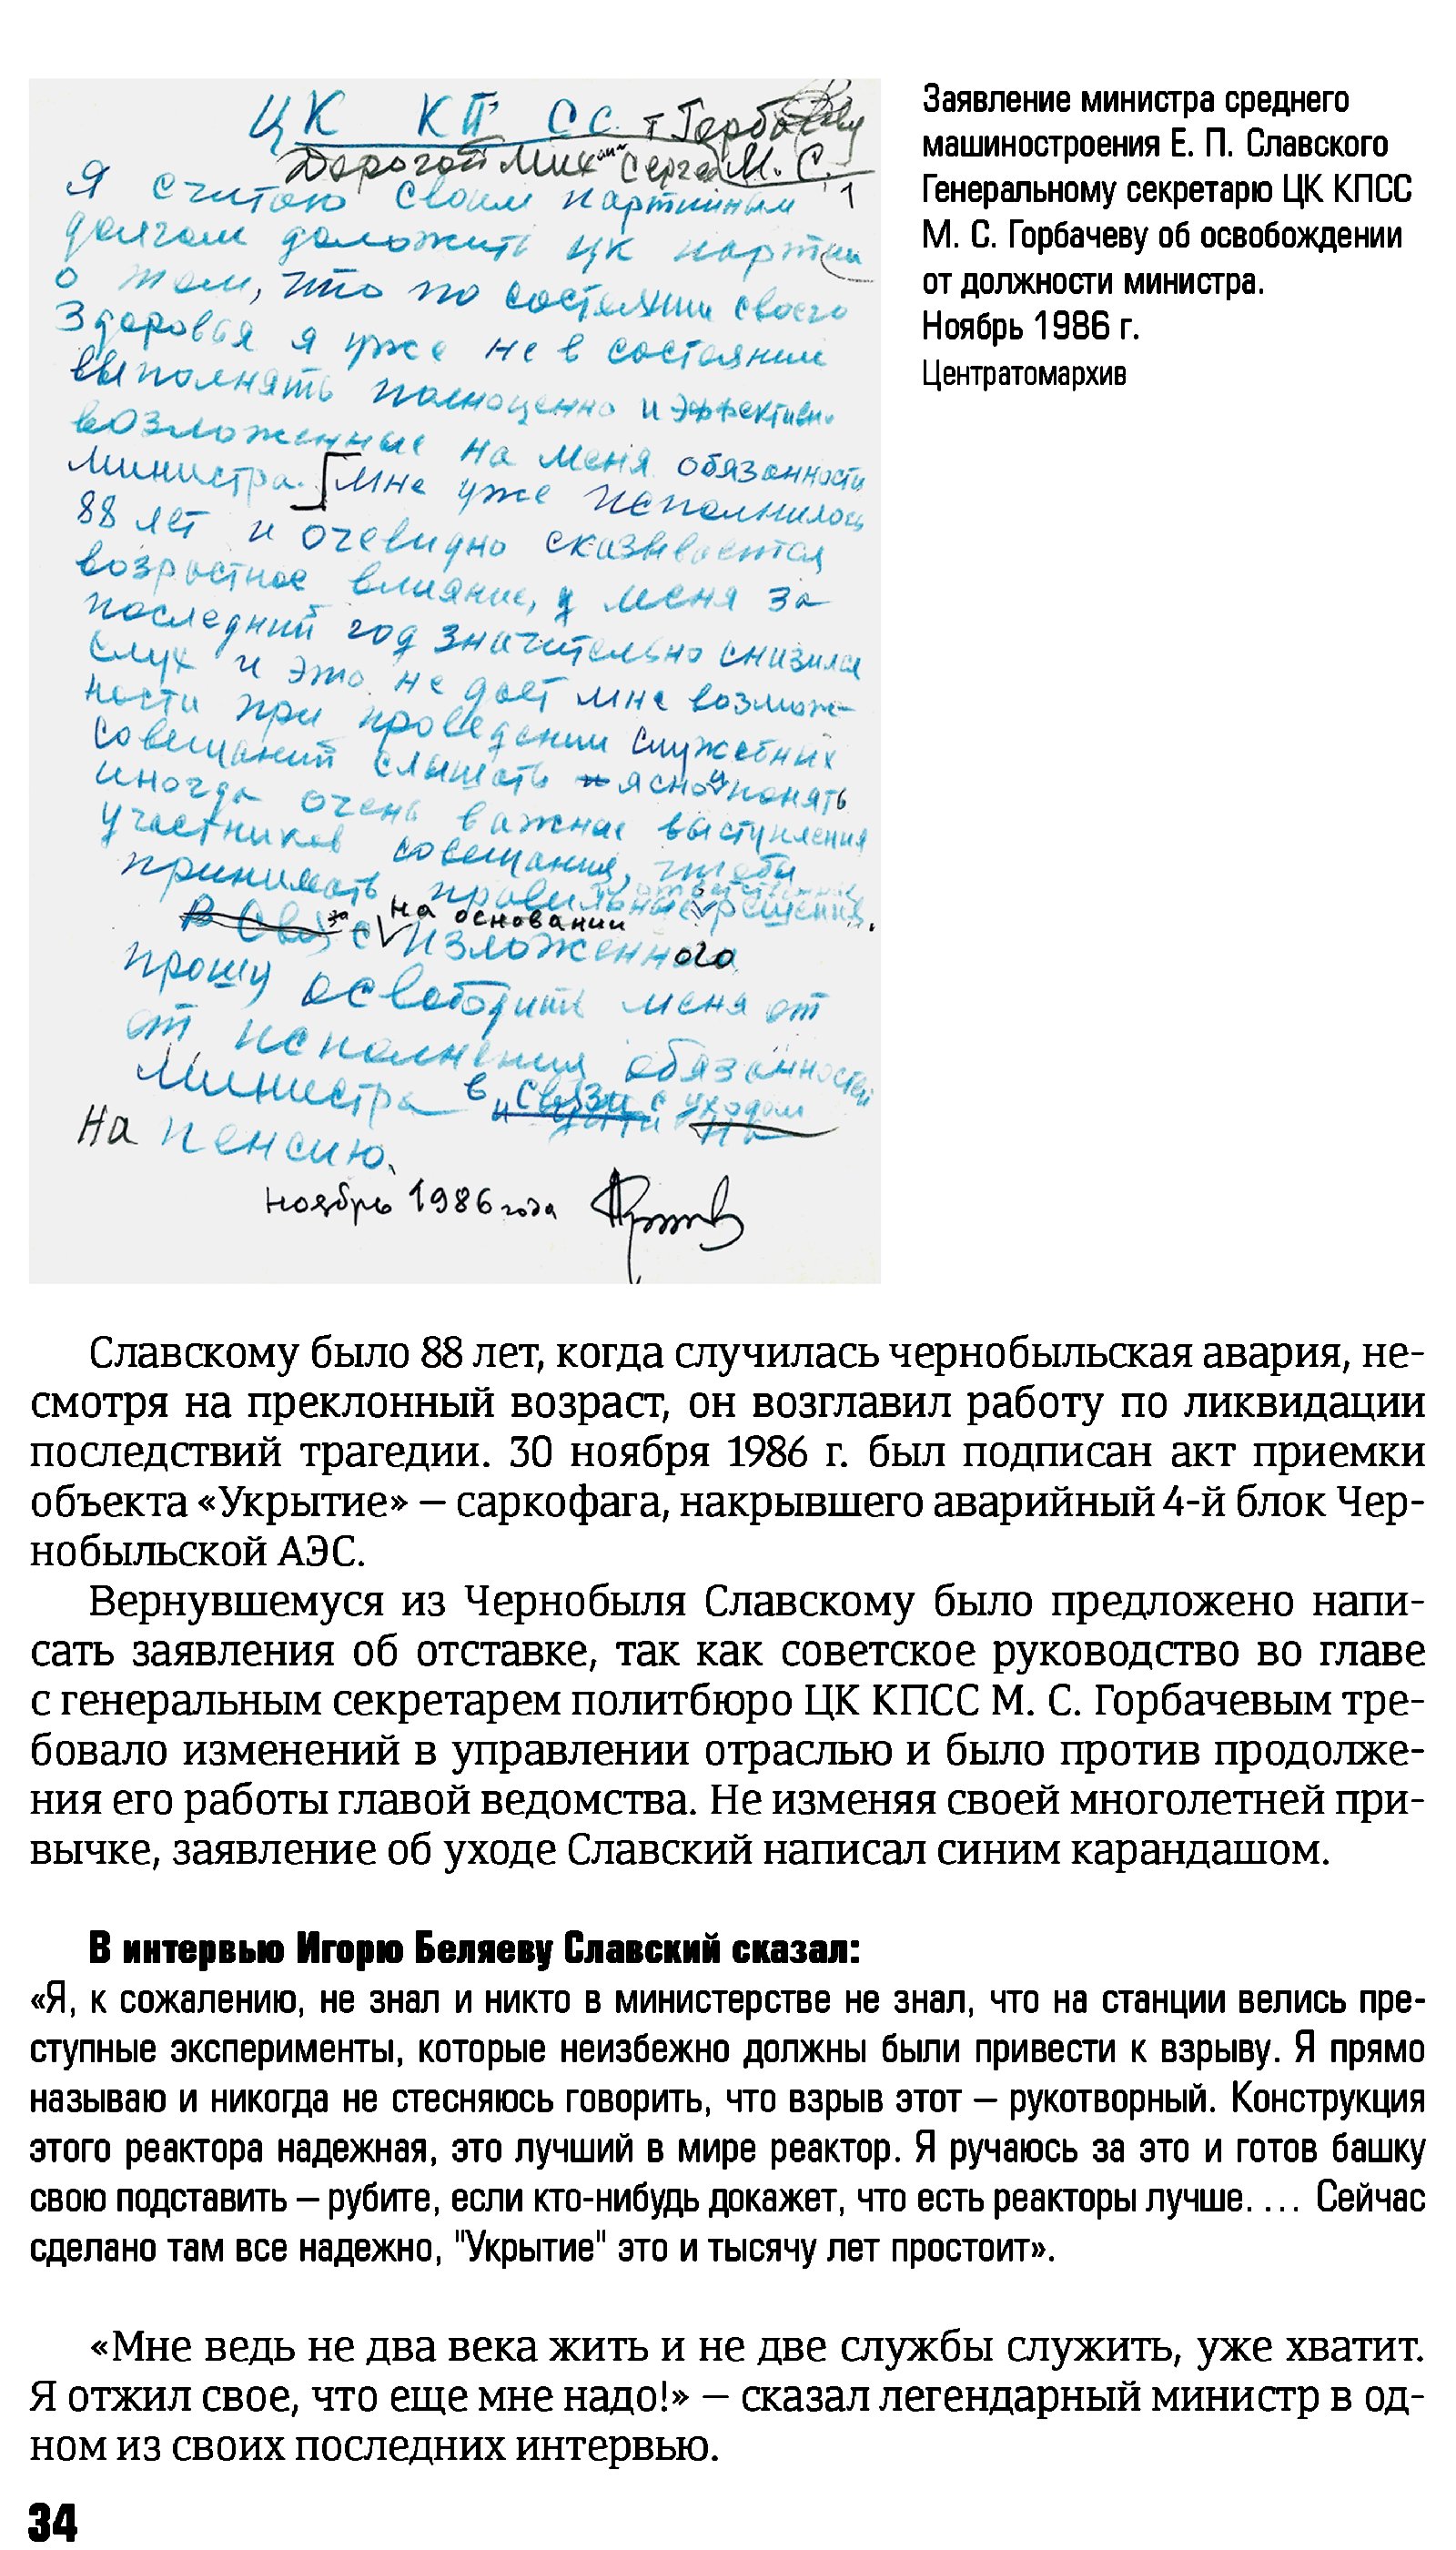 ЦК КПСС т Горбачеву
Дорогой Мих Серге М. С.
1
Я считаю своим партийным
долгом доложить ЦК партии
о том, что по состоянии своего
здоровья я уже не в состоянии
выполнять полноценно и эффективно
возложенные на меня обязанности
Министра. Мне уже исполнилось
88 лет и очевидно сказывается
возрастное влияние, у меня за
последний год значительно снизился
слух и это не дает мне возмож-
ности при проведении служебных
совещаний слышать ясно и понять
иногда очень важные выступления
участников совещания, чтобы
принимать правильные решения.
В связ на основании
изложенного
прошу освободить меня от
от исполнения обязанностей
Министра в связи с уходом
на пенсию.
ноябрь 1986 года
Заявление министра среднего
машиностроения Е. П. Славского
Генеральному секретарю ЦК КПСС
М. С. Горбачеву об освобождении
от должности министра.
Ноябрь 1986 г.
Центратомархив
Славскому было 88 лет, когда случилась чернобыльская авария, не-
смотря на преклонный возраст, он возглавил работу по ликвидации
последствий трагедии. 30 ноября 1986 г. был подписан акт приемки
объекта «Укрытие» – саркофага, накрывшего аварийный 4-й блок Чер-
нобыльской АЭС.
Вернувшемуся из Чернобыля Славскому было предложено напи-
сать заявления об отставке, так как советское руководство во главе
с генеральным секретарем политбюро ЦК КПСС М. С. Горбачевым тре-
бовало изменений в управлении отраслью и было против продолже-
ния его работы главой ведомства. Не изменяя своей многолетней при-
вычке, заявление об уходе Славский написал синим карандашом.
В интервью Игорю Беляеву Славский сказал:
«Я, к сожалению, не знал и никто в министерстве не знал, что на станции велись пре-
ступные эксперименты, которые неизбежно должны были привести к взрыву. Я прямо
называю и никогда не стесняюсь говорить, что взрыв этот – рукотворный. Конструкция
этого реактора надежная, это лучший в мире реактор. Я ручаюсь за это и готов башку
свою подставить – рубите, если кто-нибудь докажет, что есть реакторы лучше. … Сейчас
сделано там все надежно, "Укрытие" это и тысячу лет простоит».
«Мне ведь не два века жить и не две службы служить, уже хватит.
Я отжил свое, что еще мне надо!» – сказал легендарный министр в од-
ном из своих последних интервью.
34